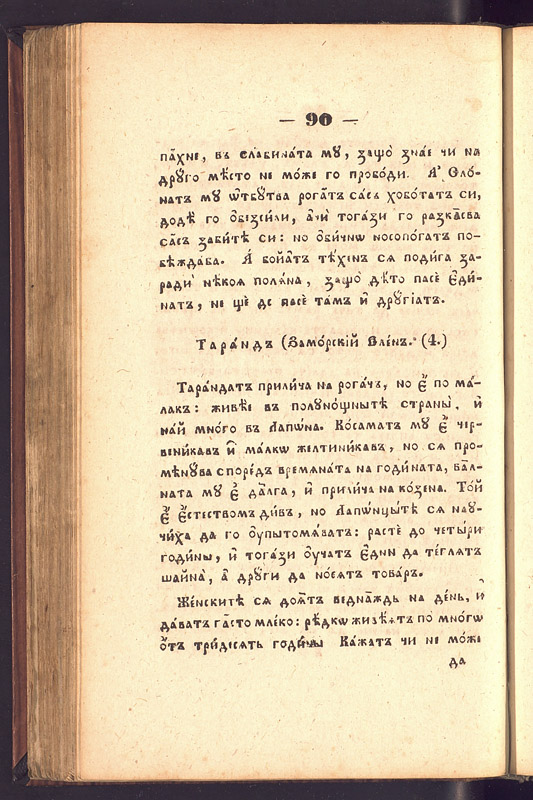 — 90 —
па́хне, въ слабина́та мꙋ, защо̀ зна́е чи на
дрꙋго мѣ́сто не мо́же го пробо́ди. А҆ Ѳло́-
натъ мꙋ ѿбꙋ́тва рога̑тъ са́съ хоботатъ си,
додѐ го ѻбезси́ли, а҆ и҆ тога́зи го разка́сва
са́съ заби́тѣ си: но ѻби́чнѡ носопо́гатъ по-
бѣжда́ва. А҆ бойа́тъ тѣ́хенъ ся поди́га за-
ради̑ нѣ́коя поля́на, защо̀ дѣ́то пасѐ є҆ди́-
натъ, не щѐ да пасѐ та́мъ и҆ дрꙋ́гїатъ.
Тара́ндъ (Замо́рскїй Єле́нъ. (4.)
Тара́ндатъ прили́ча на рога́чъ, но є҆̀ по ма́-
лакъ: живѣ́е въ полꙋно́щнытѣ страны̀, и҆
на́й мно́го въ Лапѡ́на. Ко́саматъ мꙋ є҆̀ чер-
вени́кавъ и҆ ма́лкѡ желтини́кавъ, но ся про-
мѣнꙋ́ва споре́дъ времяна́та на годи́ната, ба́л-
ната мꙋ є҆̀ да́лга, и҆ прили́ча на ко́зена. То́й
є҆̀ є҆сте́ствомъ ди́въ, но Лапѡ́нцытѣ ся наꙋ-
чи́ха да го ᲂу҆питомя́ватъ: растѐ до четы́ри
годи́ны, и҆ тога́зи ᲂу҆чатъ є҆дни да те́глятъ
шайна̀, а҆ дрꙋ́ги да но́сятъ това́ръ.
Же́нскитѣ ся доя́тъ веднажд́ь на де́нь, и҆
да́ватъ га́сто мле́ко: рѣ́дкѡ живѣ́ятъ по мно́гѡ
ѿ три́десять годи́ны Ка́жатъ чи не мо́же
да